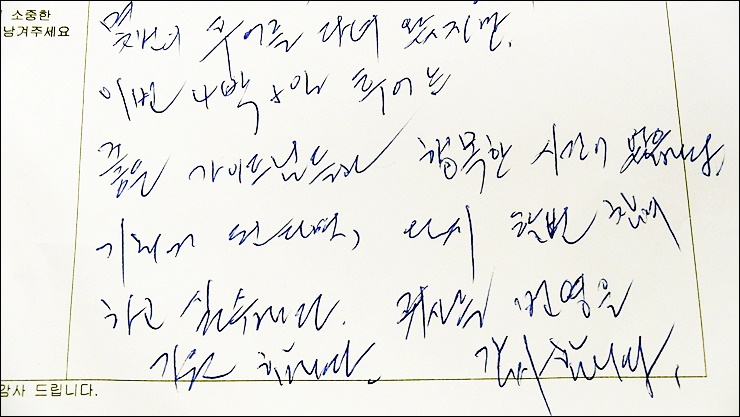 소중한
남겨주세요
몇번의 투어를 다녀 왔지만,
이번 4박 5일 투어는
좋은 가이드님들과 행복한 시간이 었습니다,
기회가 된다면, 다시 한번 참여
하고 싶습니다. 귀사의 번영을
기원 합니다. 감사합니다.
감사 드립니다.